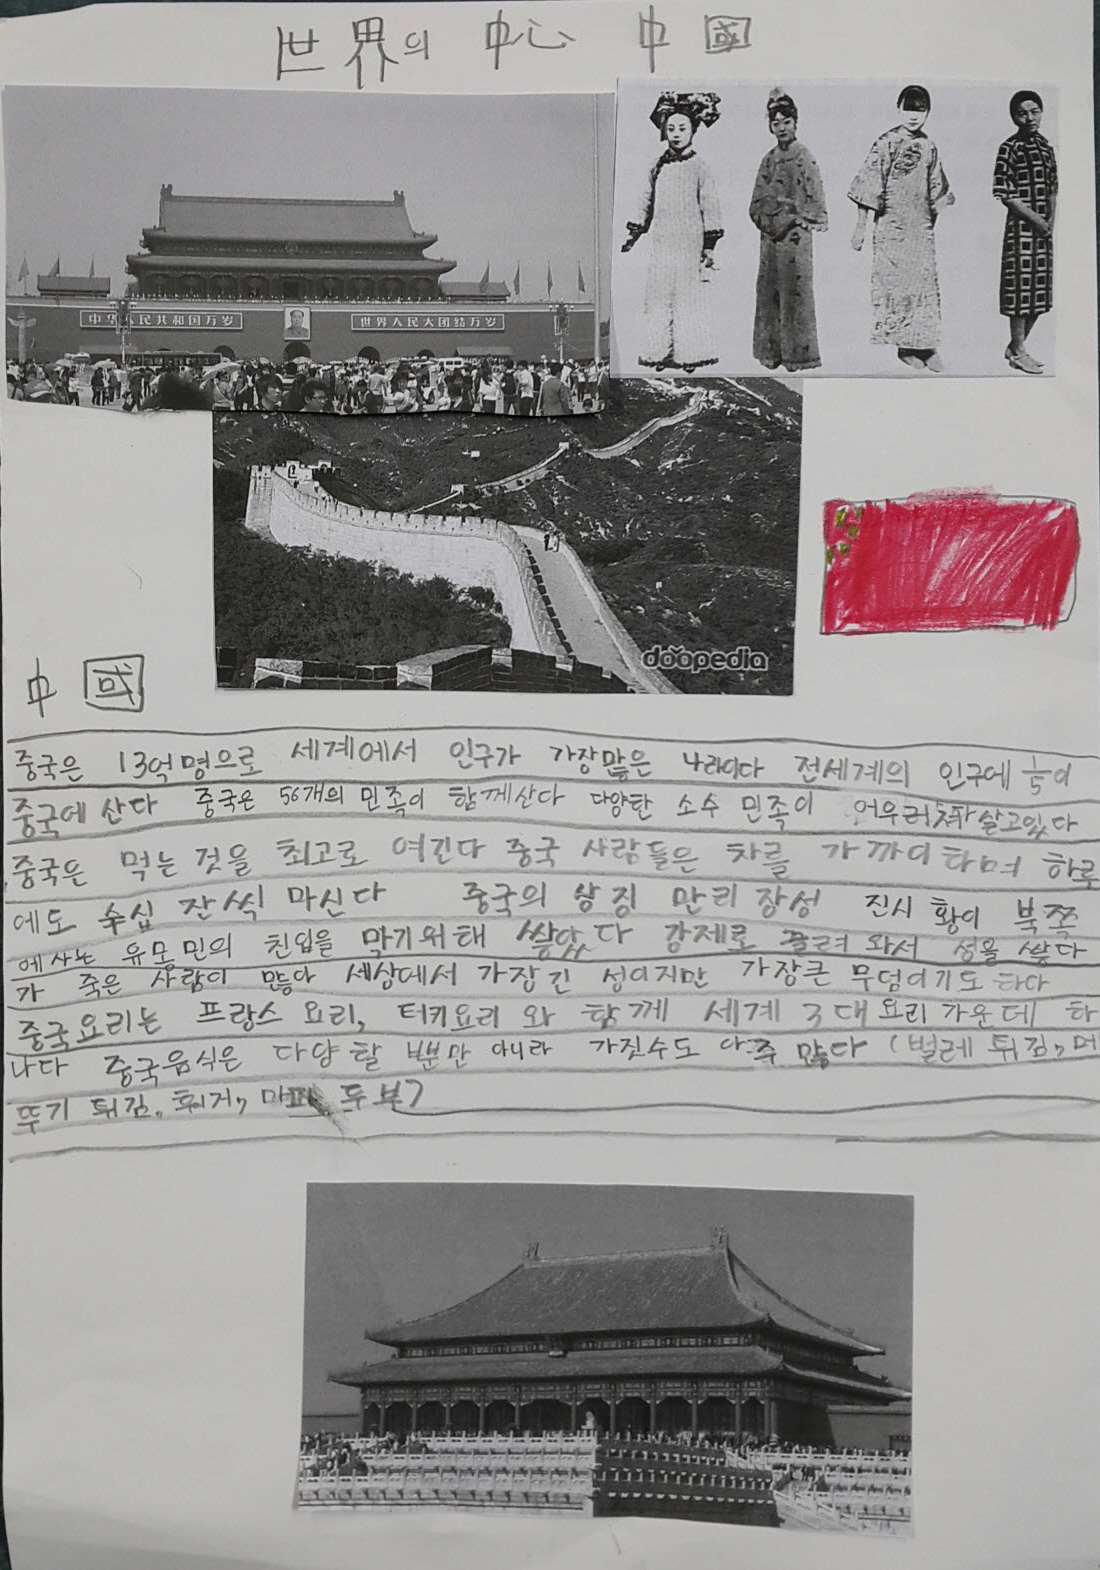 世界의 中心 中國
中华人民共和国万岁 世界人民大团结万岁
doopedia
中國
중국은 13억명으로 세계에서 인구가 가장많은 나라이다 전세계의 인구에 1/5이
중국에 산다 중국은 56개의 민족이 함께산다 다양한 소수 민족이 살고있다
중국은 먹는 것을 최고로 여긴다 중국 사람들은 차를 가까이 하며 하루
에도 수십 잔씩 마신다 중국의 상징 만리 장성 진시황이 북쪽
에사는 유목민의 친입을 막기위해 쌓았다 강제로 끌려 와서 성을 쌓다
가 죽은 사람이 많아 세상에서 가장긴 성이지만 가장큰 무덤이기도 하다
중국요리는 프랑스 요리, 터키요리 와 함께 세계 3대 요리 가운데 하
나다 중국음식은 다양할 뿐만 아니라 가짓수도 아주 많다 (벌레 튀김, 메
뚜기 튀김, 훠거, 마파 두부)